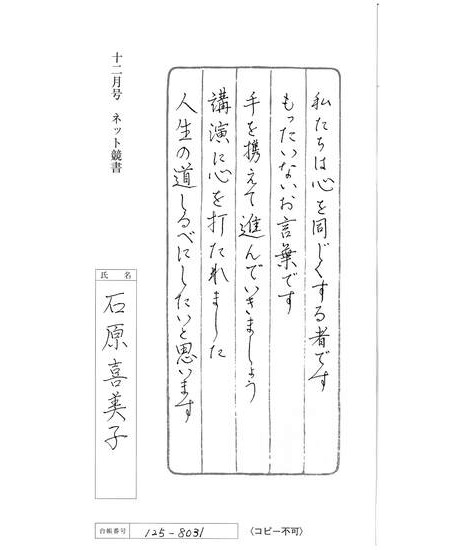 私たちは心を同じくする者です
もったいないお言葉です
手を携えて進んでいきましょう
講演に心を打たれました
人生の道しるべにしたいと思います
十二月号 ネット競書
氏名
石原喜美子
台帳番号 125-8031
〈コピー不可〉